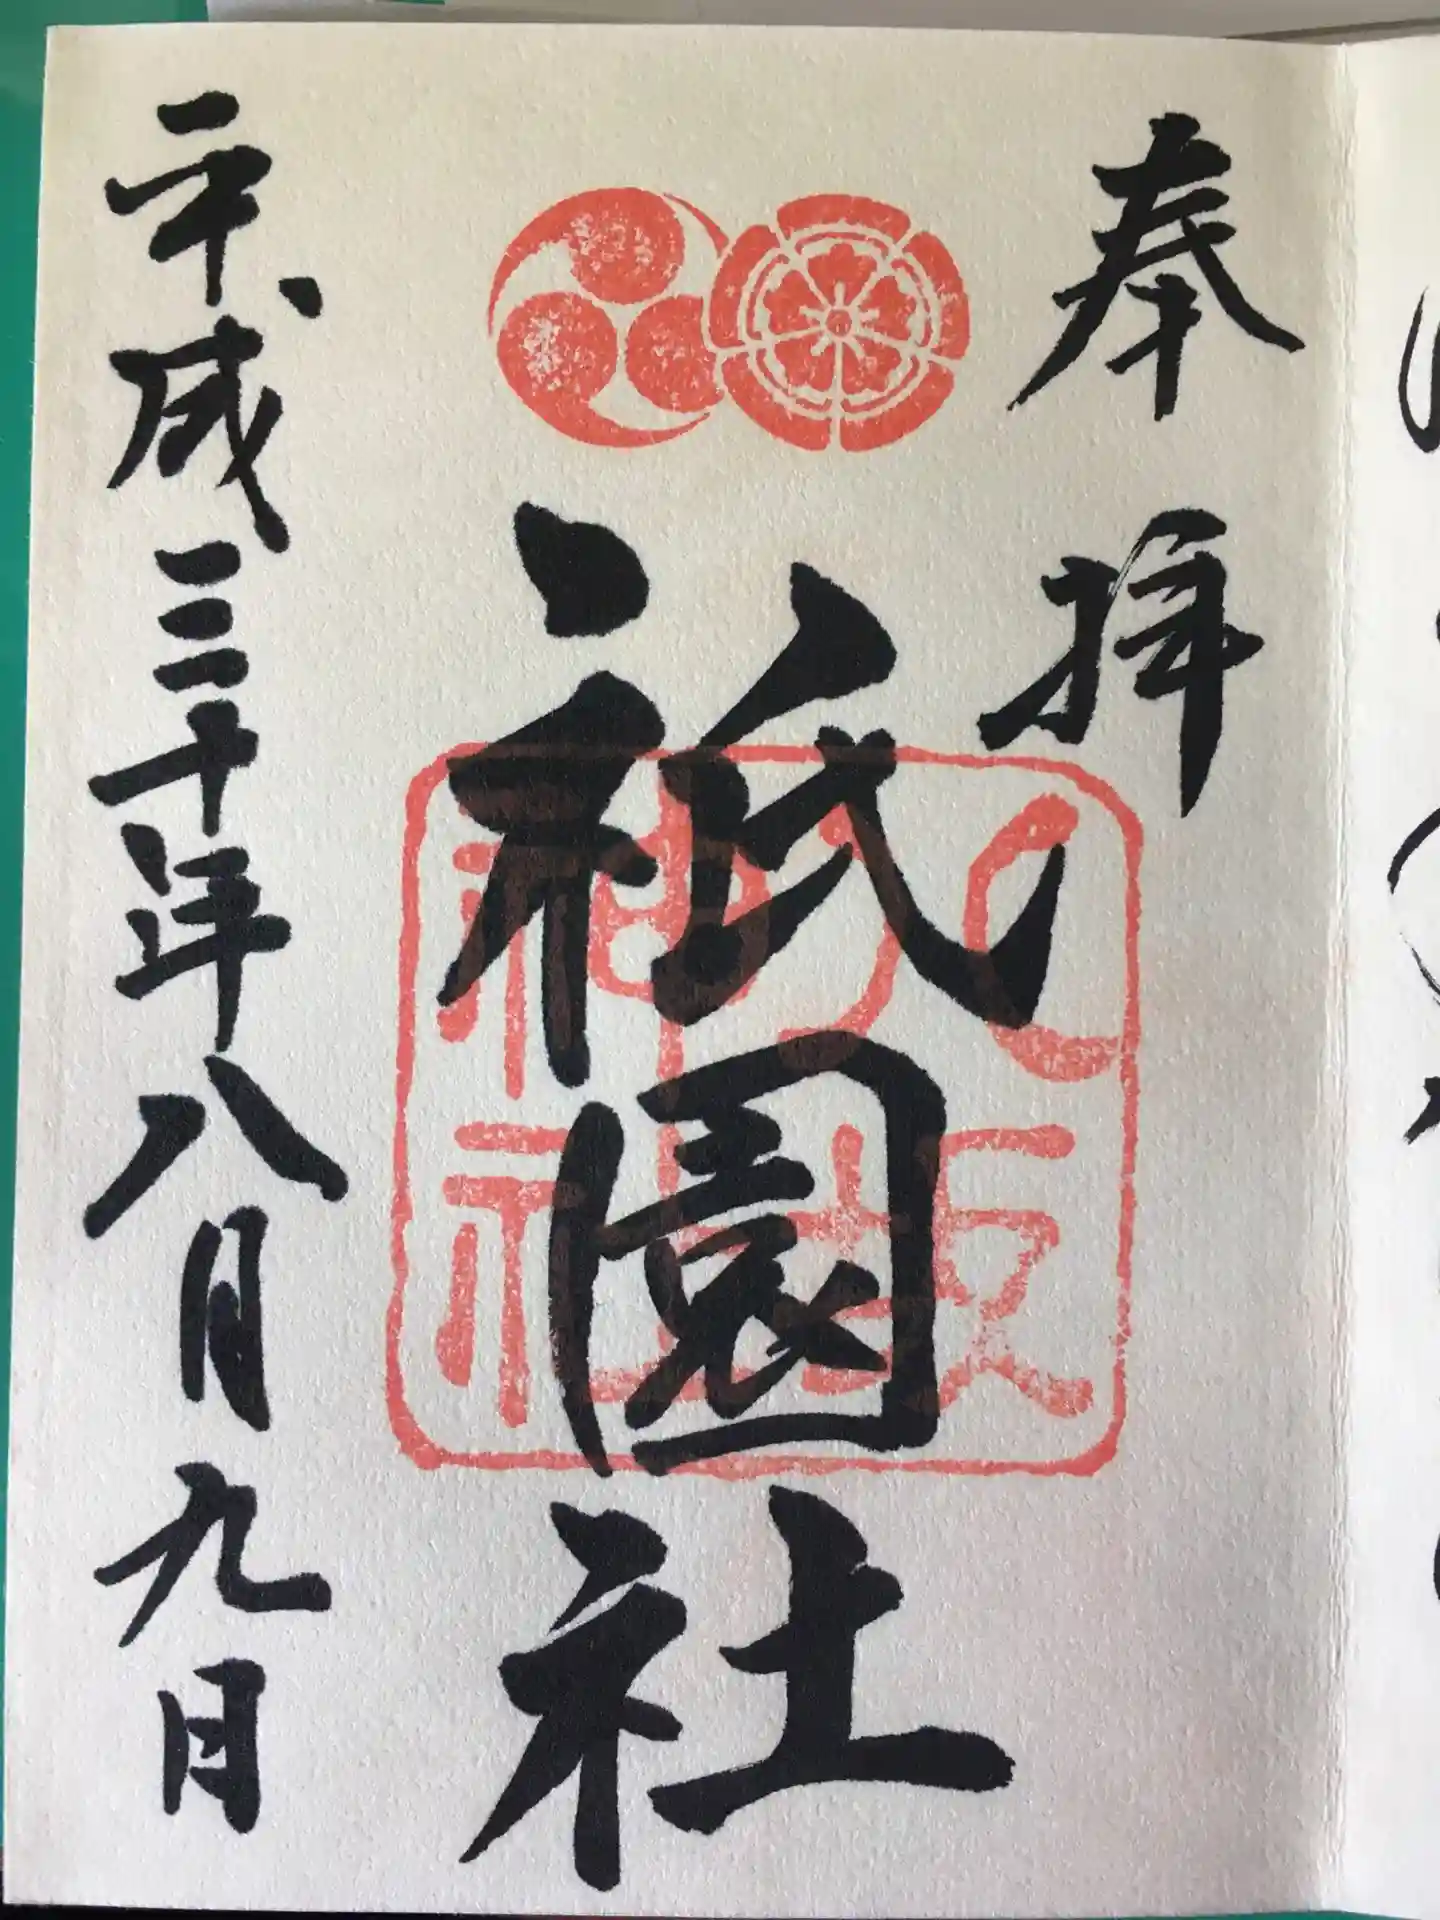 奉拝
祇園社
八坂
神社
平成三十年八月九日